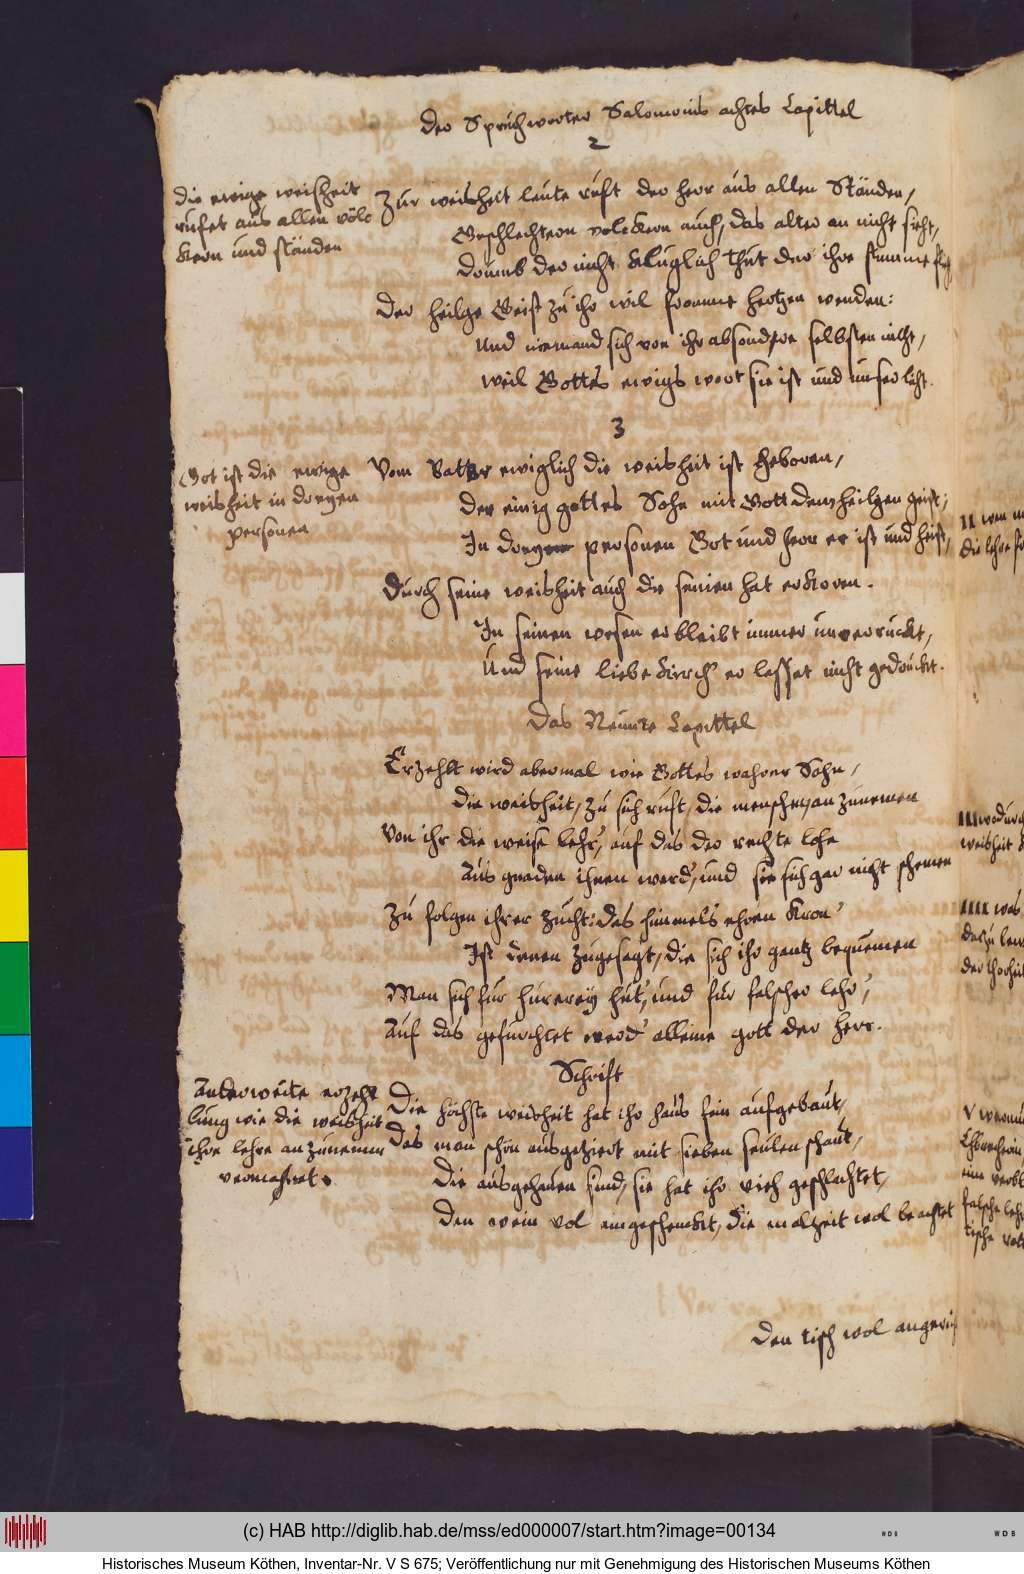 Der Sprüchworter Salomonis achtes Capittel
2
die ewige weisheit
rufet aus allen völc
kern und ständen
Zur weisheit leute ruft der herr aus allen Ständen,
Geschlechtern volckern auch, das alter an nicht sicht,
Drumb der nicht klüglich thut der ihre stimme
Der heilge Geist zu ihr wil fromme hertzen wenden:
Und niemand sich von ihr absondre selbsten nicht,
weil Gottes ewigs wort sie ist und unser licht.
3
Got ist die ewige
weisheit in dreyen
personen
Vom Vatter ewiglich die weisheit ist geboren,
Der einig gottes Sohn mit Gott dem heilgen geist;
In dreyen personen Got und herr er ist und heist,
Durch seine weisheit auch die seinen hat erkoren.
In seinen wesen er bleibt immer unverruckt,
Und seine liebe Kirch' er lesset nicht gedruckt.
Das Neunte Capittel
Erzehlt wird abermal wie Gottes wahrer Sohn,
Die weisheit, zu sich ruft, die menschen, an zunemen
Von ihr die weise lehr', auf das der rechte lohn
Aus gnaden ihnen werd', und sie sich gar nicht schemen
Zu folgen ihrer zucht: des himmels ehren Kron'
Ist denen zugesagt, die sich ihr gantz bequemen
Man sich für hurerey hüt', und für falscher lehr',
Auf das gefürchtet werd' alleine gott der herr.
Schrift
Anderweite erzehl
lung wie die weisheit
ihre lehre an zunemen
vermahnet.
Die höchste weisheit hat ihr haus fein aufgebaut,
Das man schön ausgeziert mit sieben seulen schaut,
Die ausgehauen sind, sie hat ihr vieh geschlachtet,
Den wein vol eingeschenckt, die malzeit wol beachtet
Den tisch wol
(c) HAB http://diglib.hab.de/mss/ed000007/start.htm?image=00134
WDB
WDB
Historisches Museum Köthen, Inventar-Nr. V S 675; Veröffentlichung nur mit Genehmigung des Historischen Museums Köthen